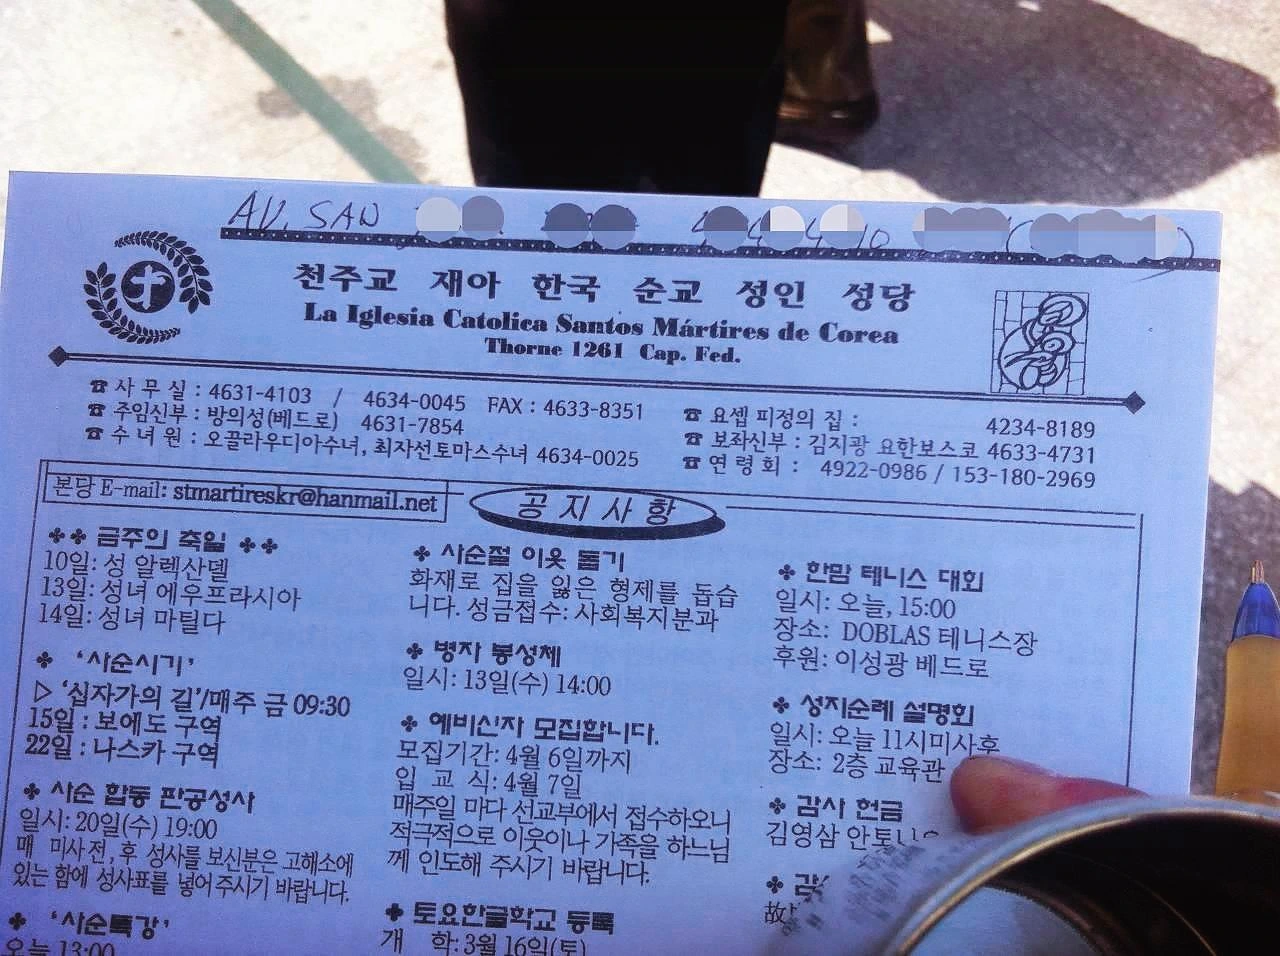 AV. SAN
천주교 재아 한국 순교 성인 성당
La Iglesia Catolica Santos Mártires de Corea
Thorne 1261 Cap. Fed.
☎ 사 무 실 : 4631-4103 / 4634-0045 FAX : 4633-8351
☎ 주임신부 : 방의성(베드로) 4631-7854
☎ 수 녀 원 : 오끌라우디아수녀, 최자선토마스수녀 4634-0025
☎ 요셉 피정의 집 : 4234-8189
☎ 보좌신부 : 김지광 요한보스코 4633-4731
☎ 연 령 회 : 4922-0986 / 153-180-2969
본당 E-mail: stmartireskr@hanmail.net
공지사항
금주의 축일
10일: 성 알렉산델
13일: 성녀 에우프라시아
14일: 성녀 마틸다
‘사순시기’
▷ ‘십자가의 길’/매주 금 09:30
15일 : 보에도 구역
22일 : 나스카 구역
사순 합동 판공성사
일시: 20일(수) 19:00
매 미사 전, 후 성사를 보신분은 고해소에
있는 함에 성사표를 넣어 주시기 바랍니다.
‘사순특강’
오늘 13:00
사순절 이웃 돕기
화재로 집을 잃은 형제를 돕습
니다. 성금접수: 사회복지분과
병자 봉성체
일시: 13일(수) 14:00
예비신자 모집합니다.
모집기간: 4월 6일까지
입 교 식: 4월 7일
매주일 마다 선교부에서 접수하오니
적극적으로 이웃이나 가족을 하느님
께 인도해 주시기 바랍니다.
토요한글학교 등록
개 학: 3월 16일(토)
한맘 테니스 대회
일시: 오늘, 15:00
장소: DOBLAS 테니스장
후원: 이성광 베드로
성지순례 설명회
일시: 오늘 11시미사후
장소: 2층 교육관
감사 헌금
김영삼 안토니오
故